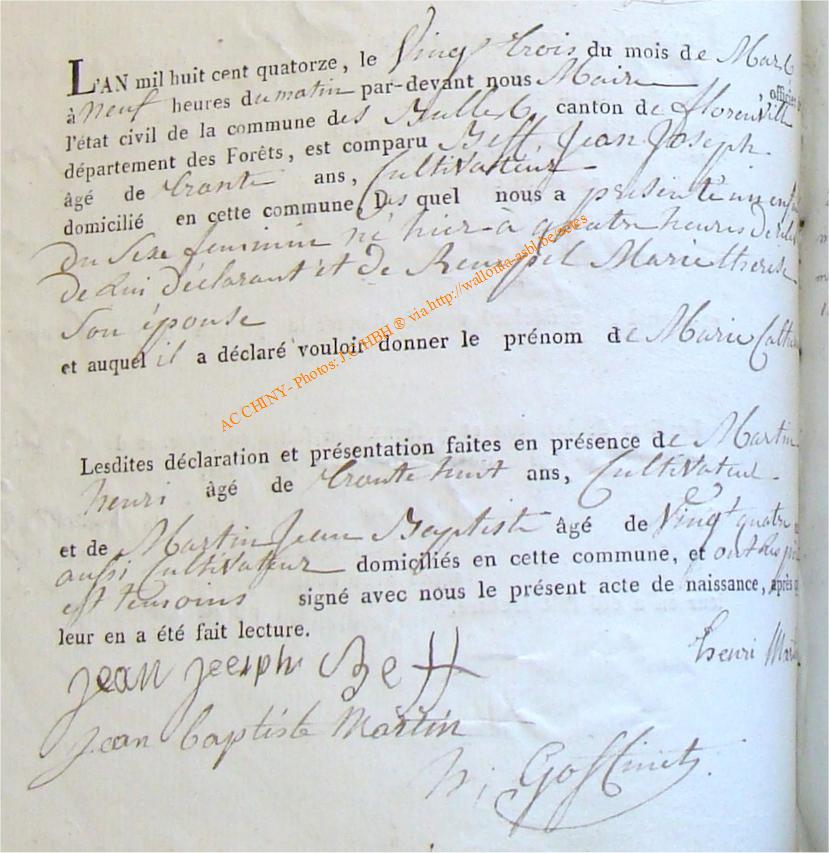 L'AN mil huit cent quatorze, le Vingt trois du mois de Mars
à Neuf heures du matin par-devant nous Maire, officier
l'état civil de la commune des Bulles, canton de florenville
département des Forêts, est comparu Beff, Jean Joseph
âgé de trante ans, Cultivateur
domicilié en cette commune, Les quel nous a présenté un enfan
Du Sexe feminin né hier à quatre heures de
De Lui déclarant et de Rempel Marie therese
Son épouse
et auquel il a déclaré vouloir donner le prénom de Marie Cathe
Lesdites déclaration et présentation faites en présence de Martin
henri âgé de trante huit ans, Cultivateur
et de Martin Jean Baptiste âgé de Vingt quatre
aussi Cultivateur domiciliés en cette commune, et ont les
est temoins signé avec nous le présent acte de naissance, après q
leur en a été fait lecture.
henri Mart
jean jeosph Beff
jean baptiste Martin
AC CHINY - Photos: ® via http://wallonia-asbl.be/actes